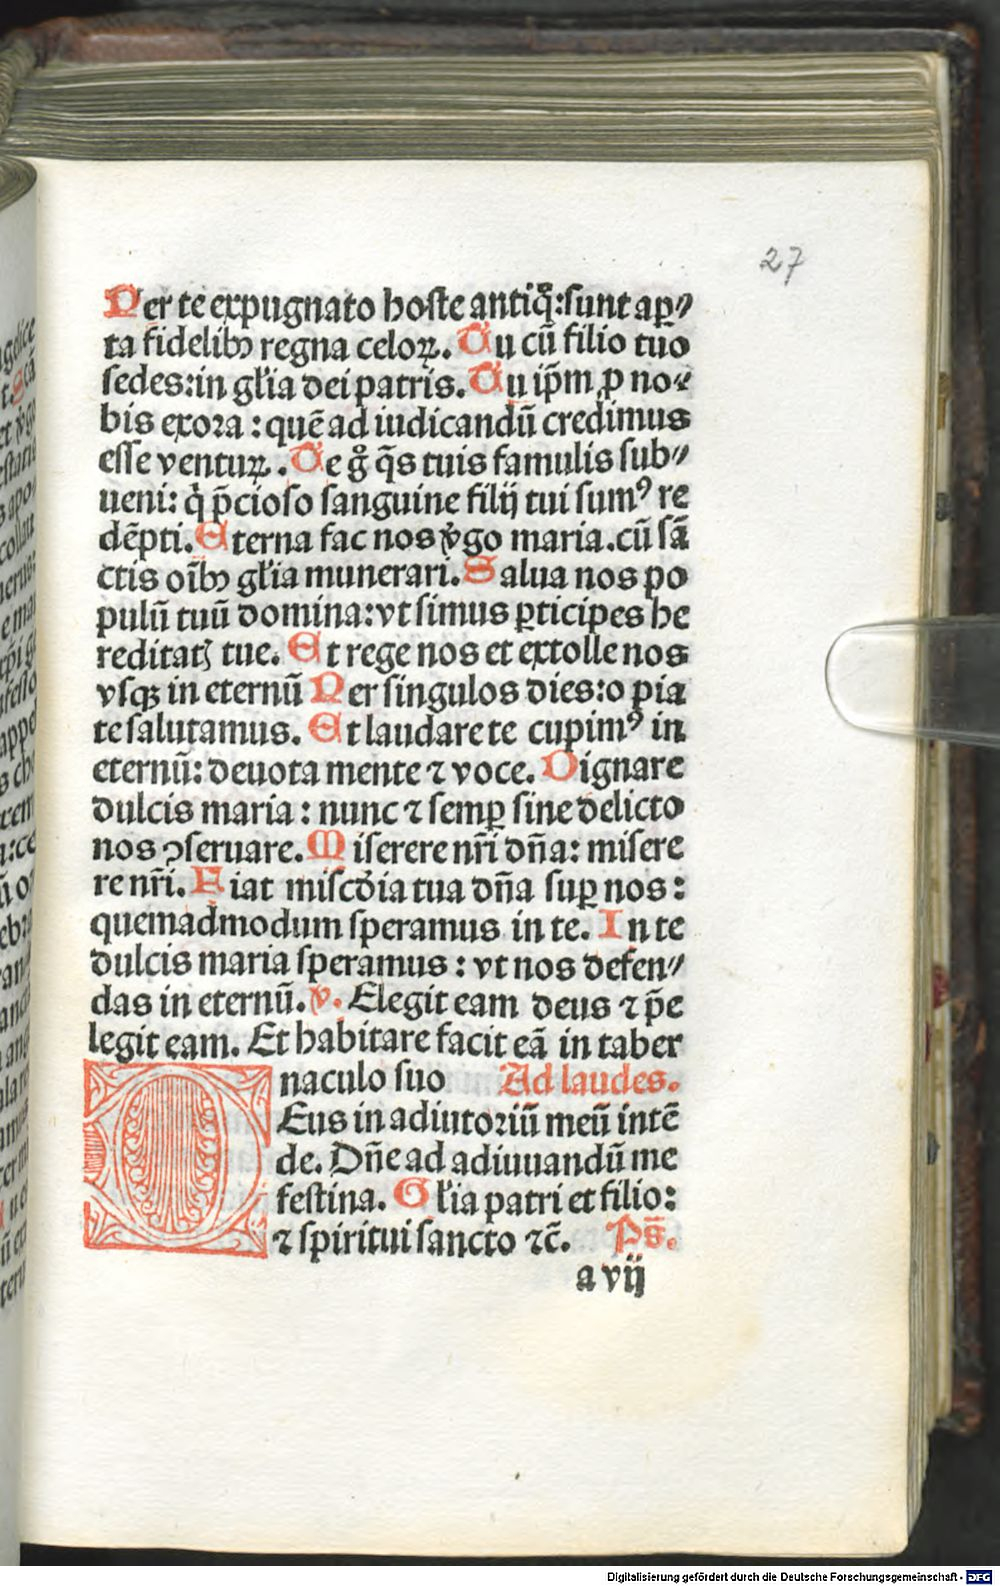 27
Per te expugnato hoste antiq̃:sunt aꝑ⸗
ta fidelibꝰ regna celoꝝ. Tu cũ filio tuo
sedes:in gl̃ia dei patris. Tu ip̃m ꝓ no⸗
bis exora : quẽ ad iudicandũ credimus
esse ventuꝝ. Te g̊ q̃s tuis famulis sub⸗
ueni: q̇ p̃cioso sanguine filij tui sumꝰ re
dẽpti. Eterna fac nos v̉go maria.cũ sã
ctis oĩbꝰ gl̃ia munerari. Salua nos po
pulũ tuũ domina:vt simus ꝑticipes he
reditatꝭ tue. Et rege nos et extolle nos
vsqꝫ in eternũ Per singulos dies:o pia
te salutamus. Et laudare te cupimꝰ in
eternũ: deuota mente ⁊ voce. Dignare
dulcis maria : nunc ⁊ semꝑ sine delicto
nos ꝯseruare. Miserere nr̃i dña: misere
re nr̃i. Fiat miscd̉ia tua dña suꝑ nos :
quemadmodum speramus in te. In te
dulcis maria speramus : vt nos defen⸗
das in eternũ. v̉. Elegit eam deus ⁊ p̃e
legit eam. Et habitare facit eã in taber
naculo suo Ad laudes.
DEus in adiutoriũ meũ intẽ
de. Dñe ad adiuuandũ me
festina. Gl̃ia patri et filio:
⁊ spiritui sancto ⁊c̃. Ps̃.
a vij
Digitalisierung gefördert durch die Deutsche Forschungsgemeinschaft - DFG